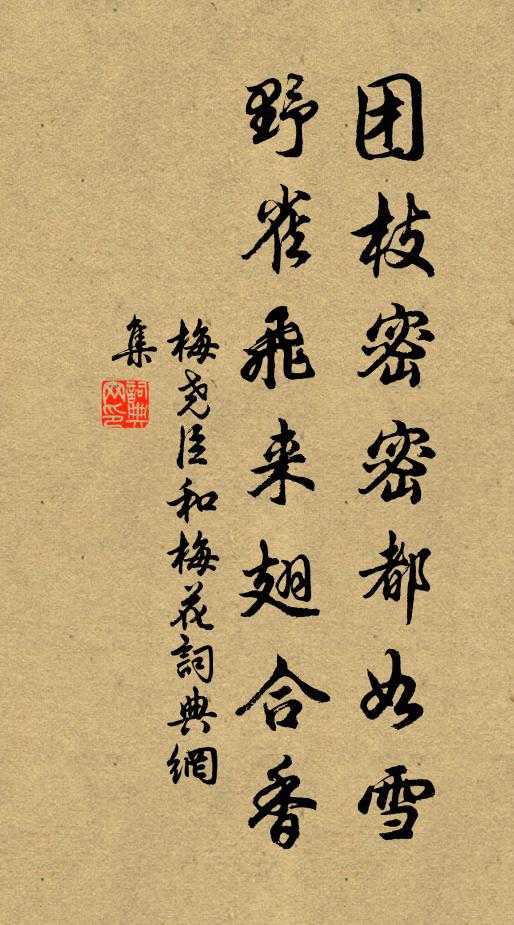 团枝密密都如雪
野雀飞来翅合香
梅尧臣和梅花词典網
集
詞典
网印